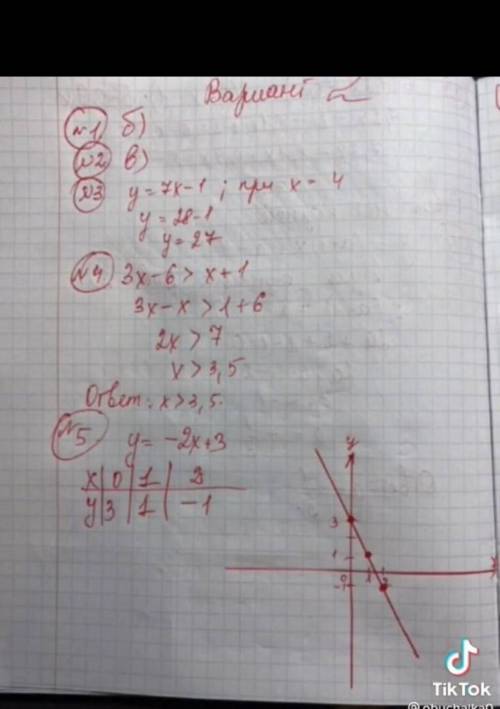 Вариант 2
№1 б)
№2 в)
№3 y = 7x-1 ; при x = 4
y = 28-1
y = 27
№4 3x-6 > x+1
3x-x > 1+6
2x > 7
x > 3,5
Ответ: x > 3,5.
№5 y = -2x+3
x | 0 | 1 | 2
y | 3 | 1 | -1
y
3
1
1 2
-1
x
TikTok
@obuchalka0